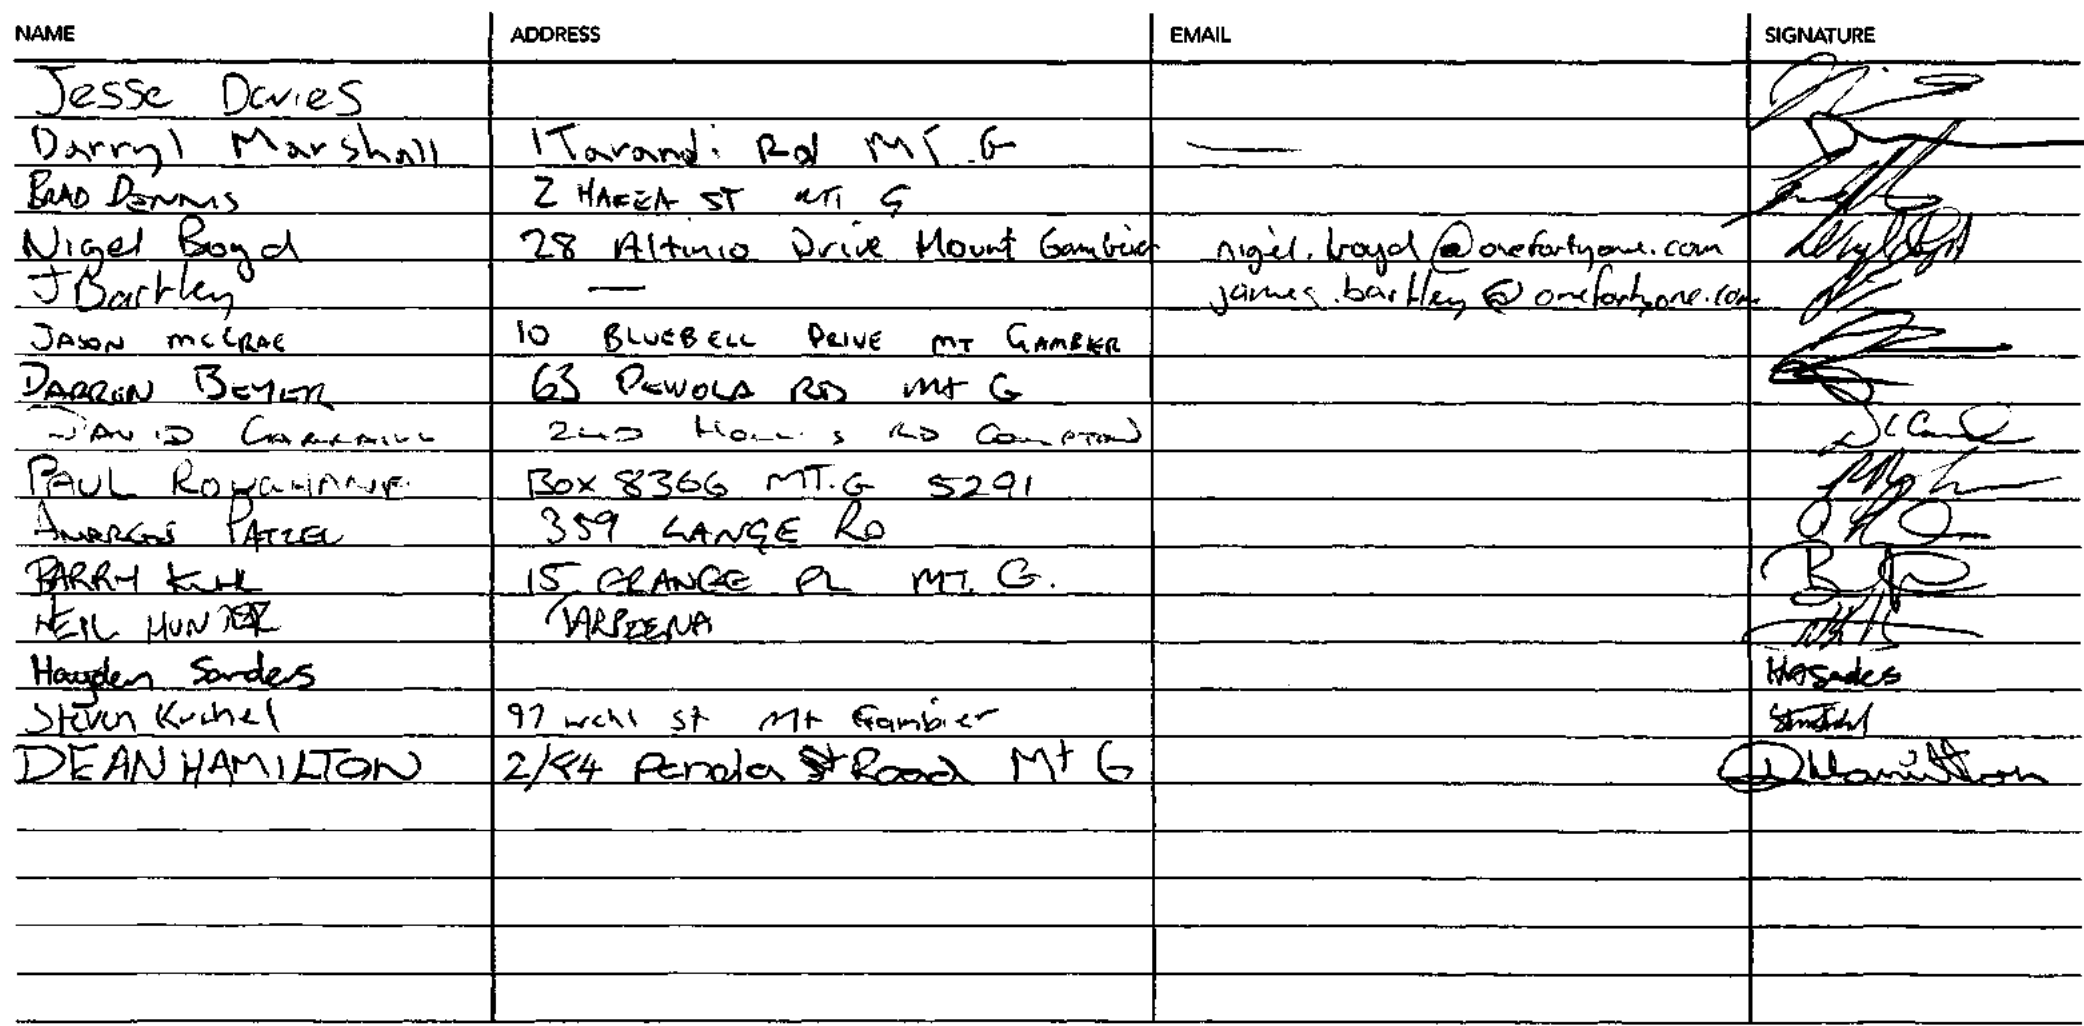 NAME ADDRESS EMAIL SIGNATURE
Jesse Davies
Darryl Marshall 1 Tarandi Rd MT. G —
BRAD DENNIS 2 HAKEA ST MT G
Nigel Boyd 28 Altinio Drive Mount Gambier nigel.boyd@onefortyone.com
J Bartley — james.bartley@onefortyone.com
JASON McCRAE 10 BLUEBELL DRIVE MT GAMBIER
DARREN BEYER 63 PEWOLA RD Mt G
DAVID RD COMPTON
PAUL Box 8366 MT.G 5291
PATZEL 359 LANGE RD
BARRY KUHL 15 GRANGE PL MT. G.
NEIL HUNTER TARPEENA
Hayden Sanders
Steven Kuchel 97 Wehl St Mt Gambier
DEAN HAMILTON Penola Road Mt G DHamilton